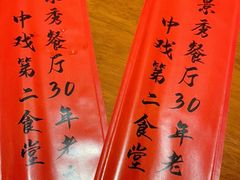 景秀餐厅30年老
中戏第二食堂
景秀餐厅30年老
中戏第二食堂